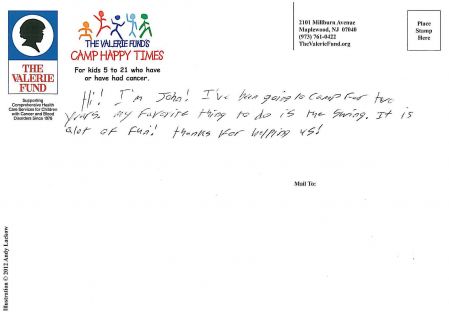 THE
VALERIE
FUND
Supporting
Comprehensive Health
Care Services for Children
with Cancer and Blood
Disorders Since 1976
THE VALERIE FUND'S
CAMP HAPPY TIMES
For kids 5 to 21 who have
or have had cancer.
2101 Millburn Avenue
Maplewood, NJ 07040
(973) 761-0422
TheValerieFund.org
Place
Stamp
Here
Hi! I'm John! I've been going to camp for two
years. my favorite thing to do is the swing. It is
alot of fun! thanks for helping us!
Mail To:
Illustration © 2012 Andy Laskow